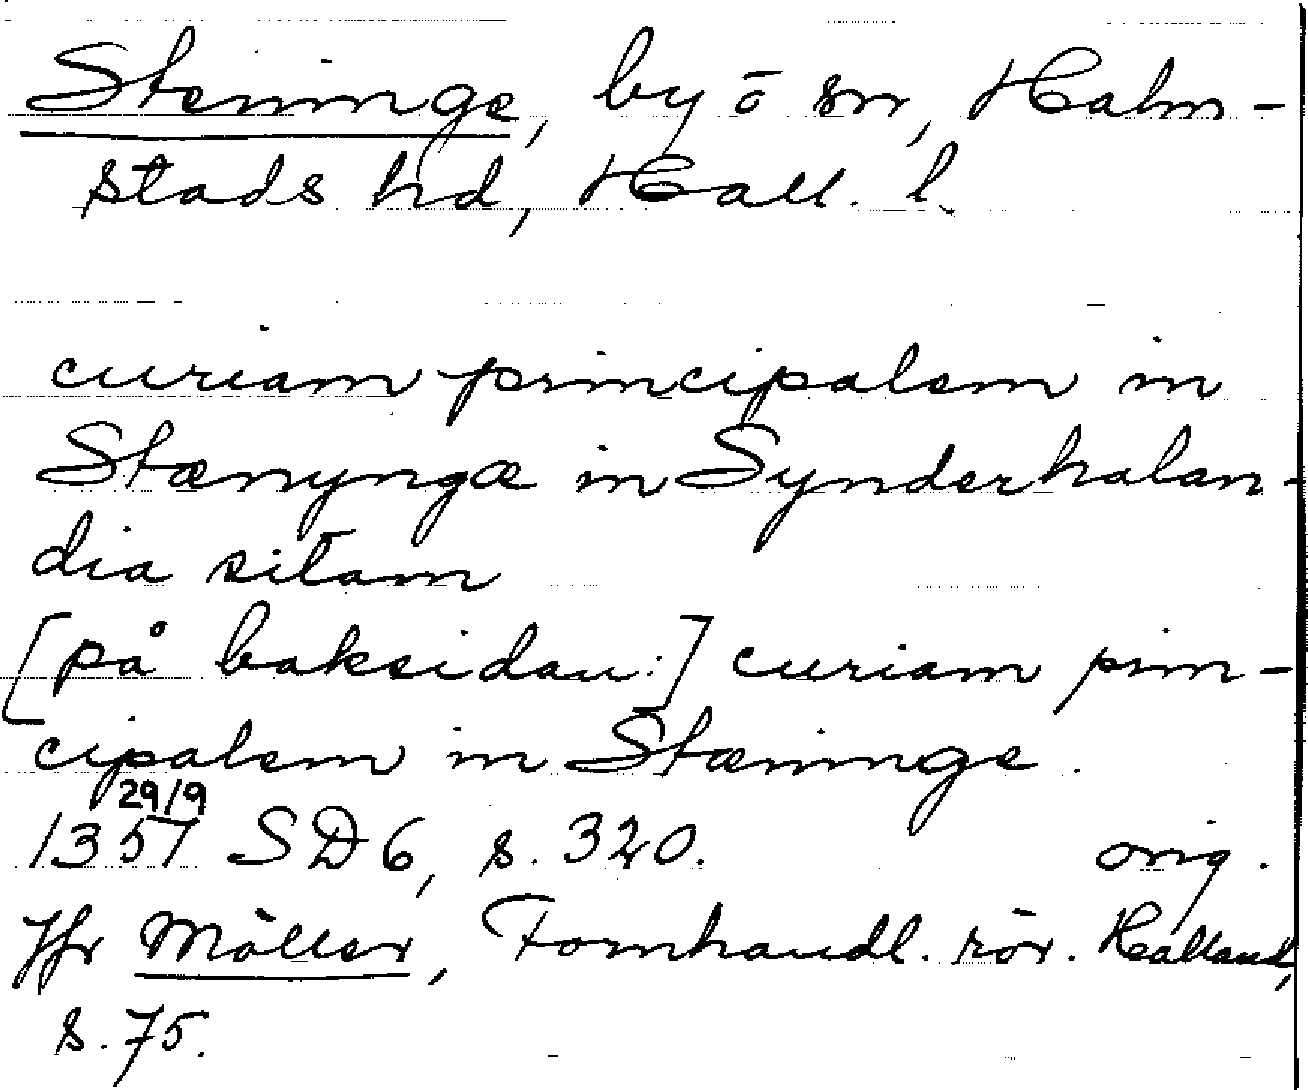 Steninge, by o sn, Halm-
stads hd, Hall. l.
curiam principalem in
Stænyngæ in Synderhalan-
dia sitam
[på baksidan:] curiam prin-
cipalem in Stæninge.
29/9
1357 SD 6, s. 320. orig.
Jfr Möller, Fornhandl. rör. Halland,
s. 75.